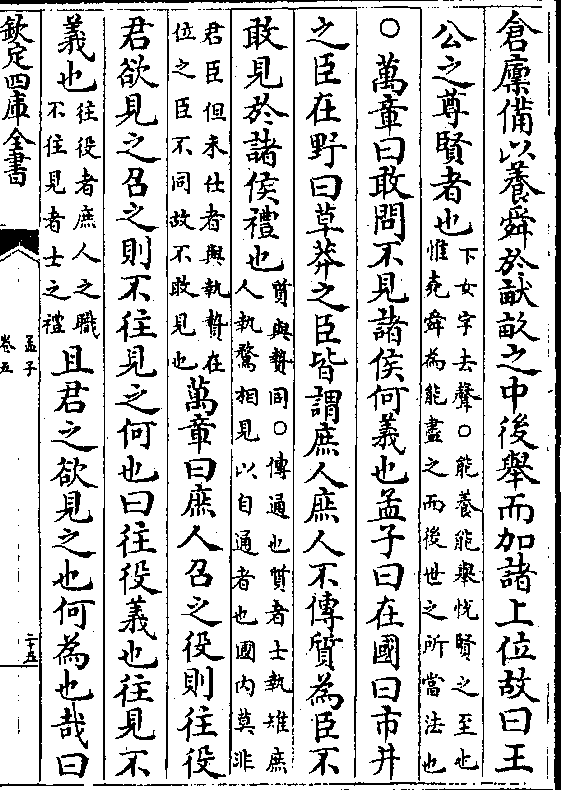 倉廩備以養舜於畎畝之中後舉而加諸上位故曰王
公之尊賢者也下女字去聲○能養能舉悅賢之至也
惟堯舜為能盡之而後世之所當法也
○萬章曰敢問不見諸侯何義也孟子曰在國曰市井
之臣在野曰草莽之臣皆謂庶人庶人不傳質為臣不
敢見於諸侯禮也質與贄同○傳通也質者士執雉庶
人執鶩相見以自通者也國內莫非
君臣但未仕者與執贄在
位之臣不同故不敢見也萬章曰庶人召之役則往役
君欲見之召之則不往見之何也曰往役義也往見不
義也往役者庶人之職
不往見者士之禮且君之欲見之也何為也哉曰
欽定四庫全書
孟子
卷五
二十五